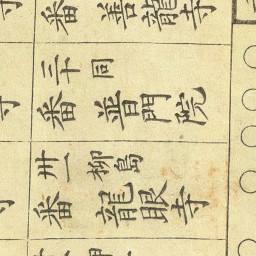 番 善龍寺
三十 同
番 普門院
卅一 柳島
番 龍眼寺